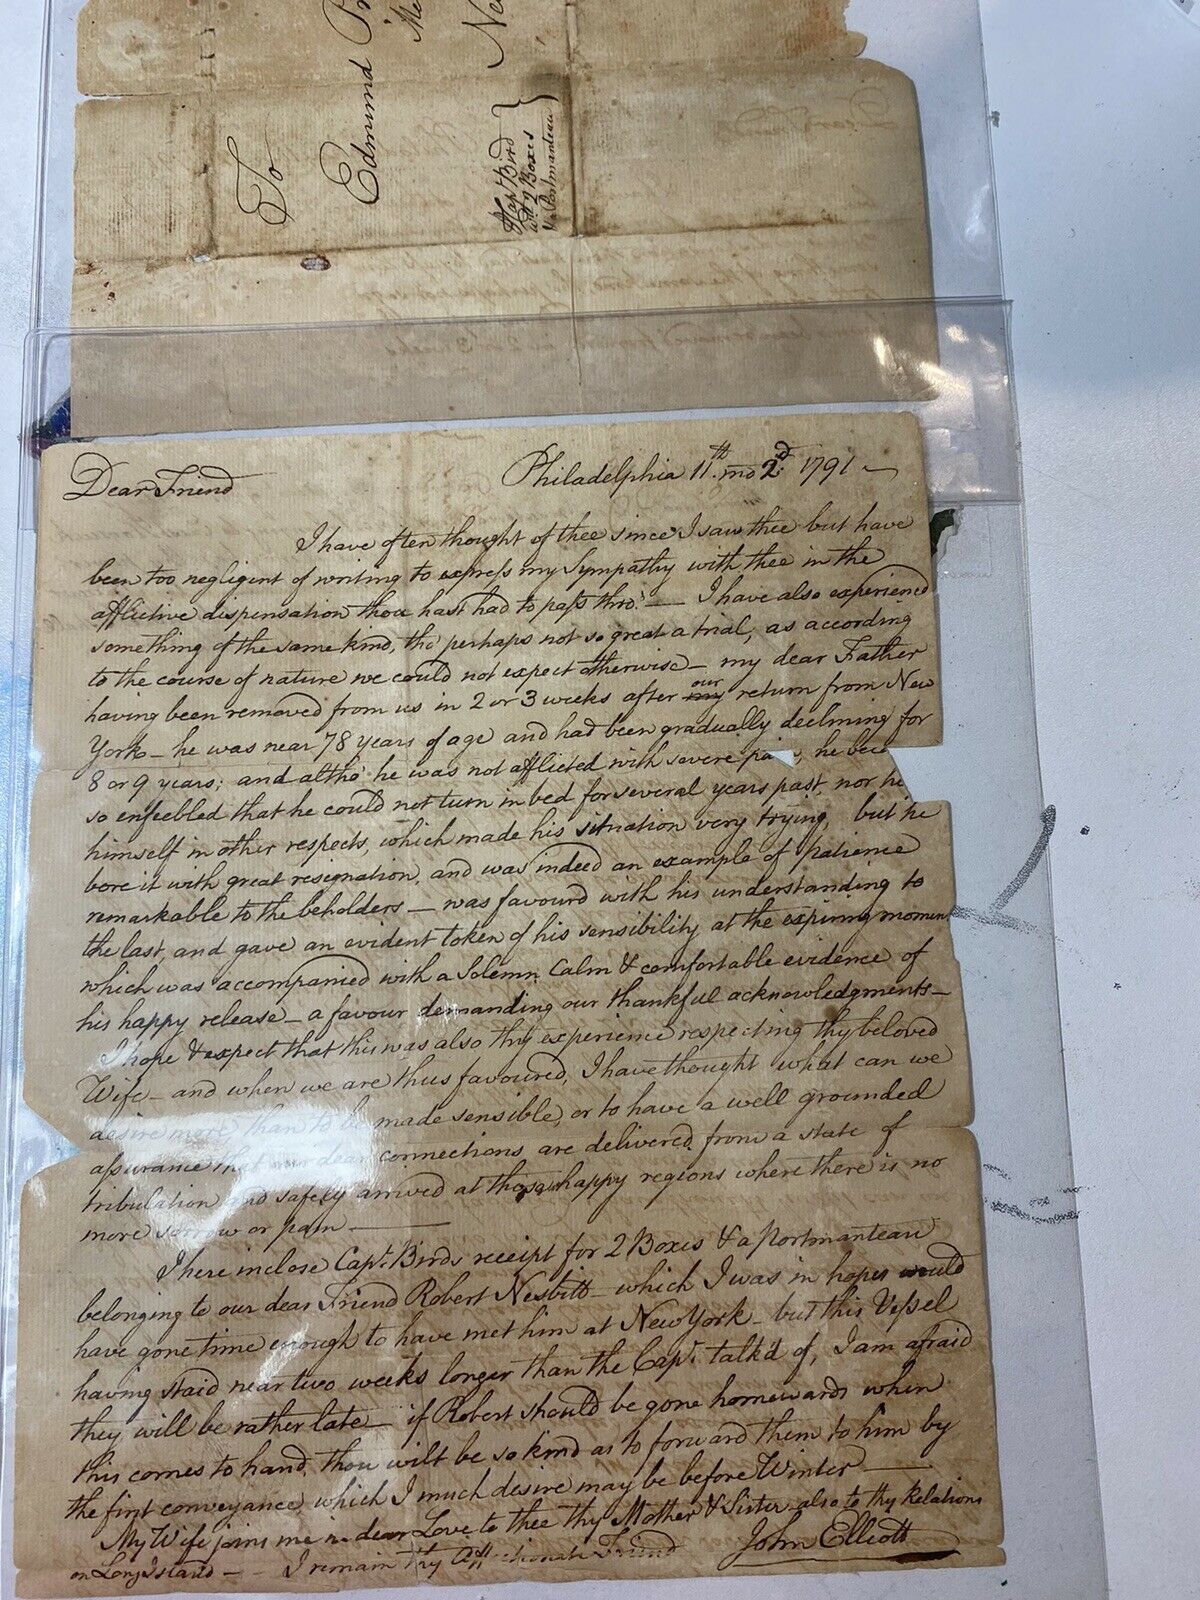 To
Edmund Pr
Me
Ne
Capt Bird
wth 2 Boxes
& Portmanteau
Philadelphia 11th mo 2d 1791
Dear Friend
I have often thought of thee since I saw thee but have
been too negligent of writing to express my Sympathy with thee in the
afflictive dispensation thou hast had to pass thro' — I have also experienced
something of the same kind, tho' perhaps not so great a trial, as according
to the course of nature we could not expect otherwise — my dear Father
having been removed from us in 2 or 3 weeks after my our return from New
York — he was near 78 years of age and had been gradually declining for
8 or 9 years; and altho' he was not afflicted with severe pa , he bec
so enfeebled that he could not turn in bed for several years past, nor he
himself in other respects, which made his situation very trying, but he
bore it with great resignation, and was indeed an example of patience
remarkable to the beholders — was favoured with his understanding to
the last, and gave an evident token of his sensibility at the expiring moment
which was accompanied with a Solemn Calm & comfortable evidence of
his happy release — a favour demanding our thankful acknowledgments —
I hope & expect that this was also thy experience respecting thy beloved
Wife — and when we are thus favoured, I have thought what can we
desire more, than to be made sensible, or to have a well grounded
assurance that our dear connections are delivered from a state of
tribulation and safely arrived at those happy regions where there is no
more sorrow or pain —
I here inclose Capt. Birds receipt for 2 Boxes & a Portmanteau
belonging to our dear Friend Robert Nesbitt — which I was in hopes would
have gone time enough to have met him at New York — but this Vessel
having staid near two weeks longer than the Capt. talk'd of, I am afraid
they will be rather late — if Robert should be gone homewards when
this comes to hand, thou wilt be so kind as to forward them to him by
the first conveyance, which I much desire may be before Winter —
My Wife joins me in dear Love to thee thy Mother & Sister also to thy Relations
on Long Island — I remain thy Affectionate Friend John Elliott